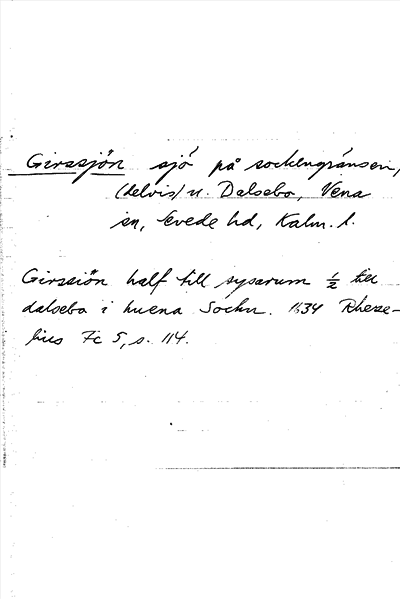 Girssjön sjö på sockengränsen,
(delvis) u. Dalsebo, Vena
sn, Sevede hd, Kalm. l.
Girssiön half till sysarum ½ till
dalsebo i huena Sockn. 1634 Rheze-
lius Fc 5, s. 114.